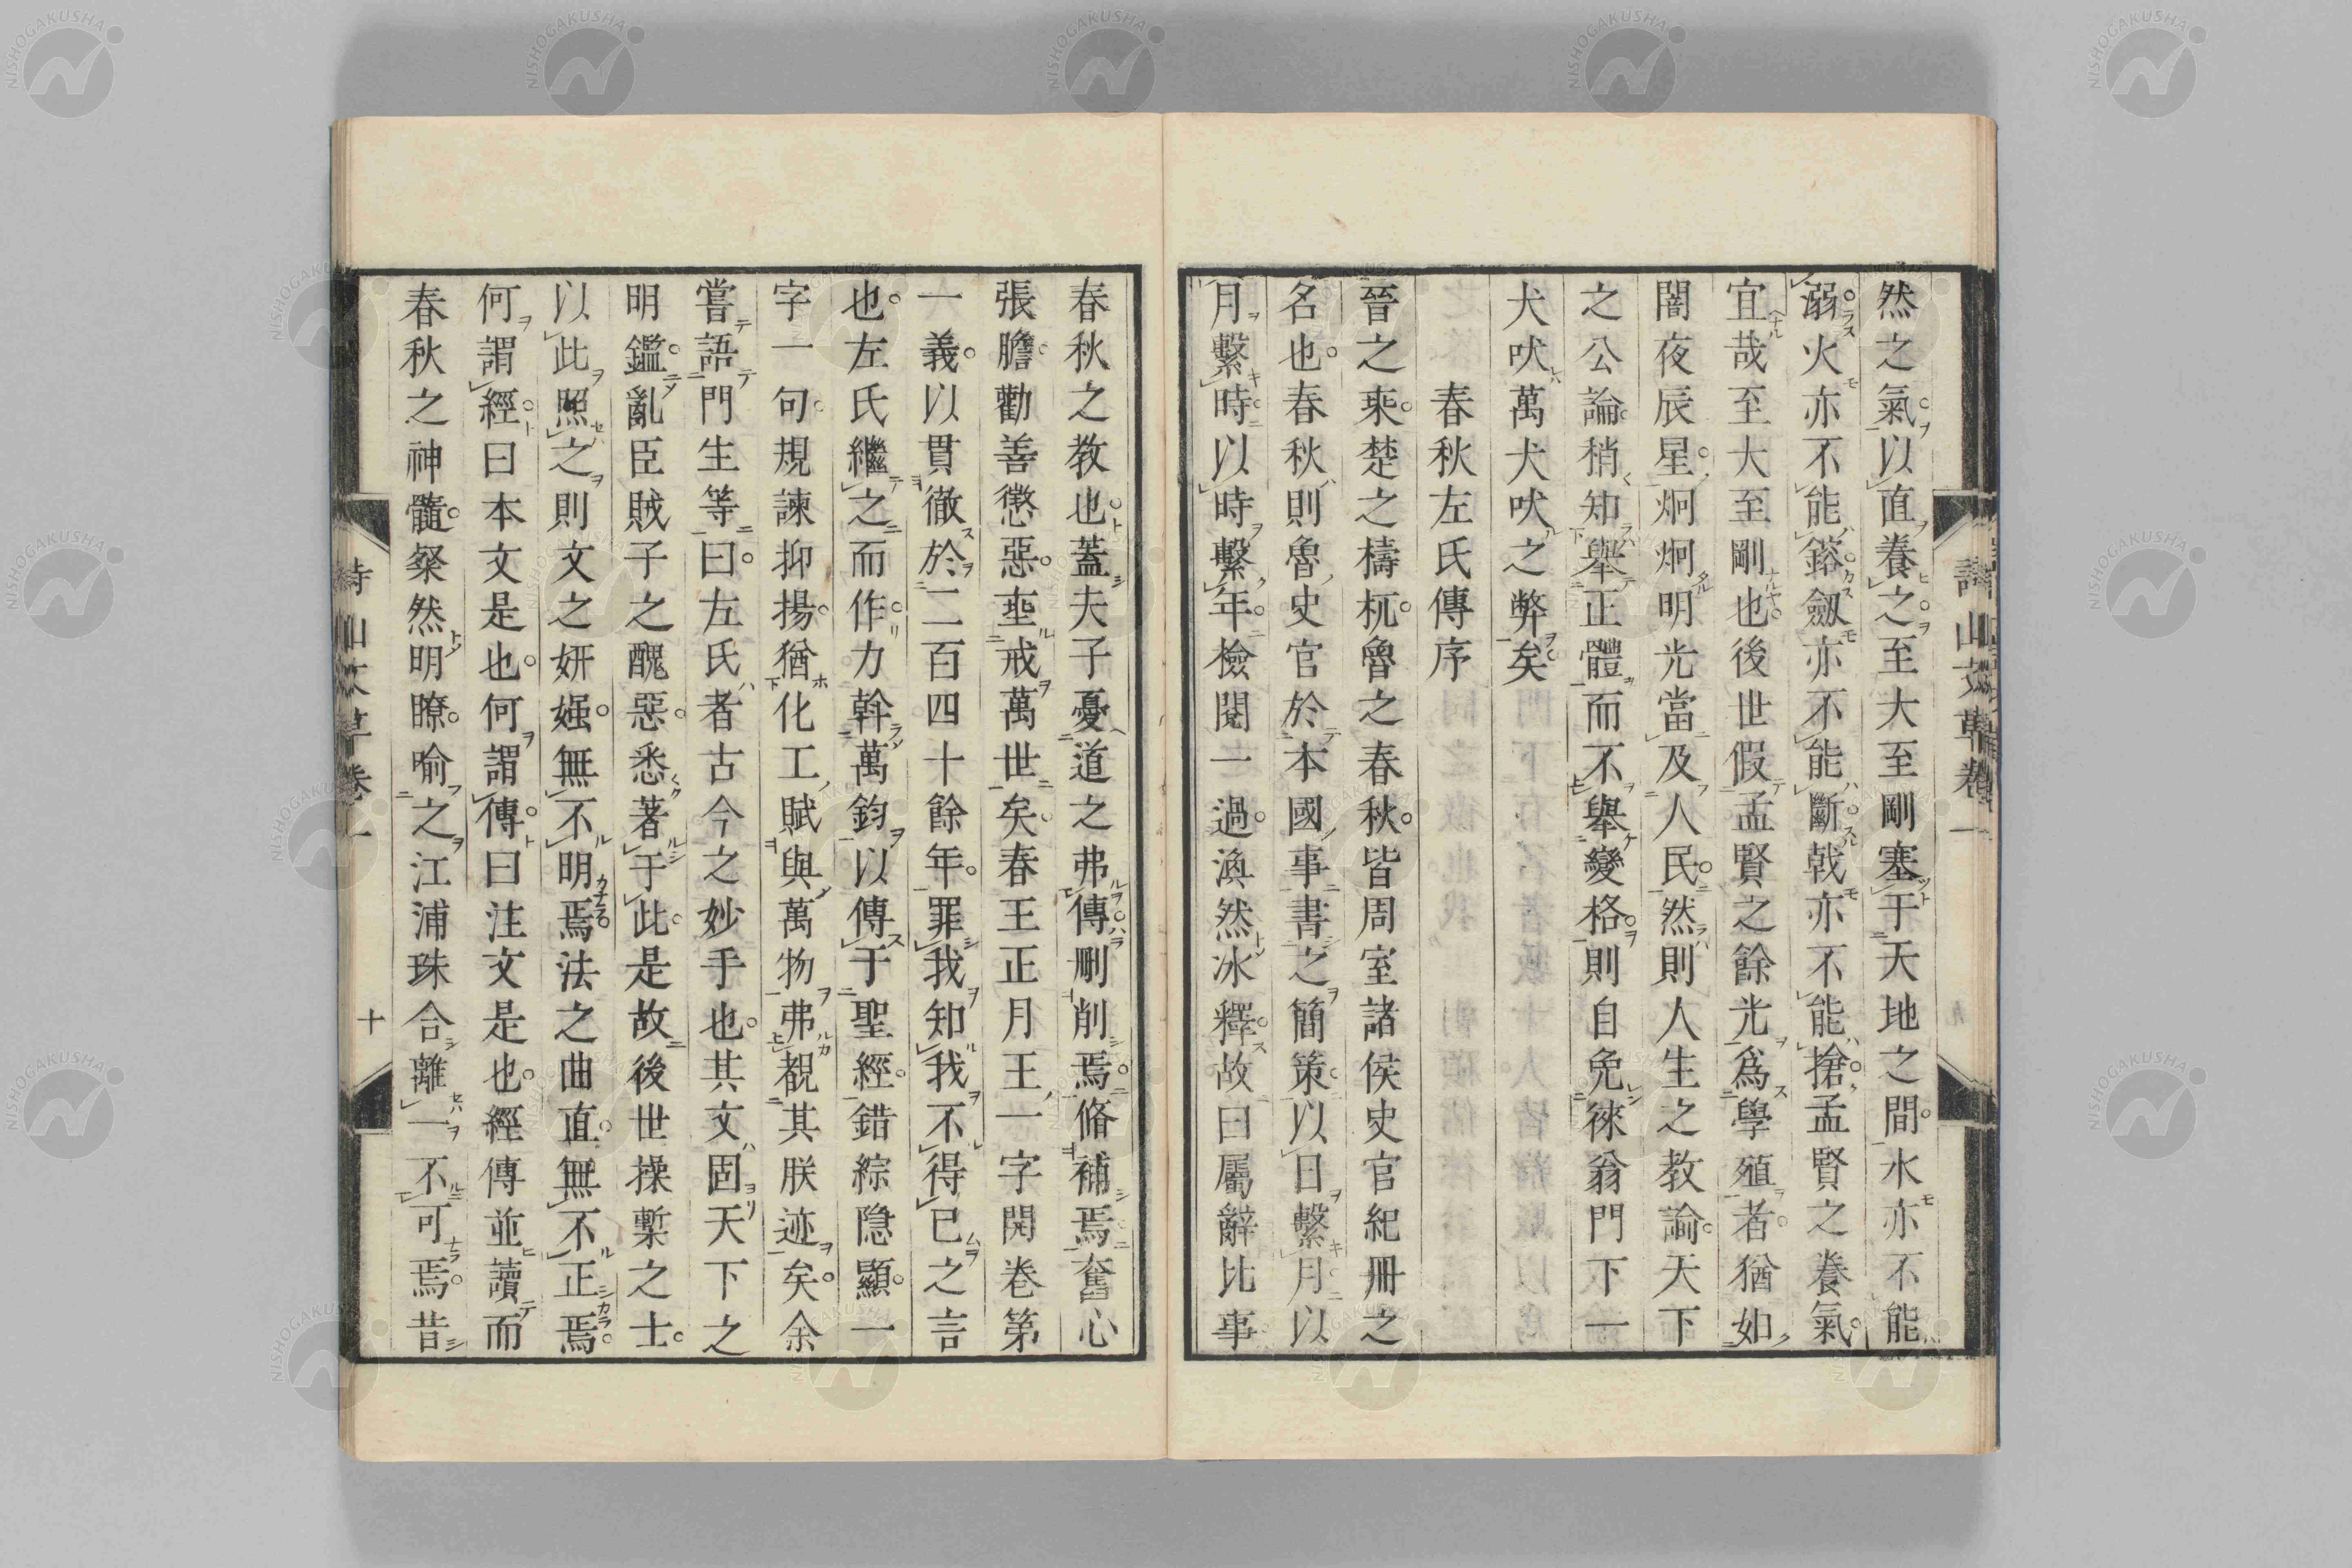 然之氣以直養之至大至剛塞于天地之間水亦不能
溺火亦不能鎔劔亦不能斷戟亦不能搶孟賢之養氣
宜哉至大至剛也後世假孟賢之餘光爲學殖者猶如
闇夜辰星炯炯明光當及人民然則人生之教諭天下
之公論稍知舉正體而不舉變格則自免徠翁門下一
犬吠萬犬吠之弊矣
春秋左氏傳序
晉之乘楚之檮杌魯之春秋皆周室諸侯史官紀冊之
名也春秋則魯史官於本國事書之簡策以日繫月以
月繫時以時繫年檢閱一過渙然冰釋故曰屬辭比事
春秋之教也蓋夫子憂道之弗傳刪削焉脩補焉奮心
張膽勸善懲惡垂戒萬世矣春王正月王一字開卷第
一義以貫徹於二百四十餘年罪我知我不得已之言
也左氏繼之而作力斡萬鈞以傳于聖經錯綜隱顯一
字一句規諫抑揚猶化工賦與萬物弗覩其朕迹矣余
嘗語門生等曰左氏者古今之妙手也其文固天下之
明鑑亂臣賊子之醜惡悉著于此是故後世操槧之士
以此照之則文之妍媸無不明焉法之曲直無不正焉
何謂經曰本文是也何謂傳曰注文是也經傳並讀而
春秋之神髓粲然明瞭喻之江浦珠合離一不可焉昔
詩山文草卷一
十